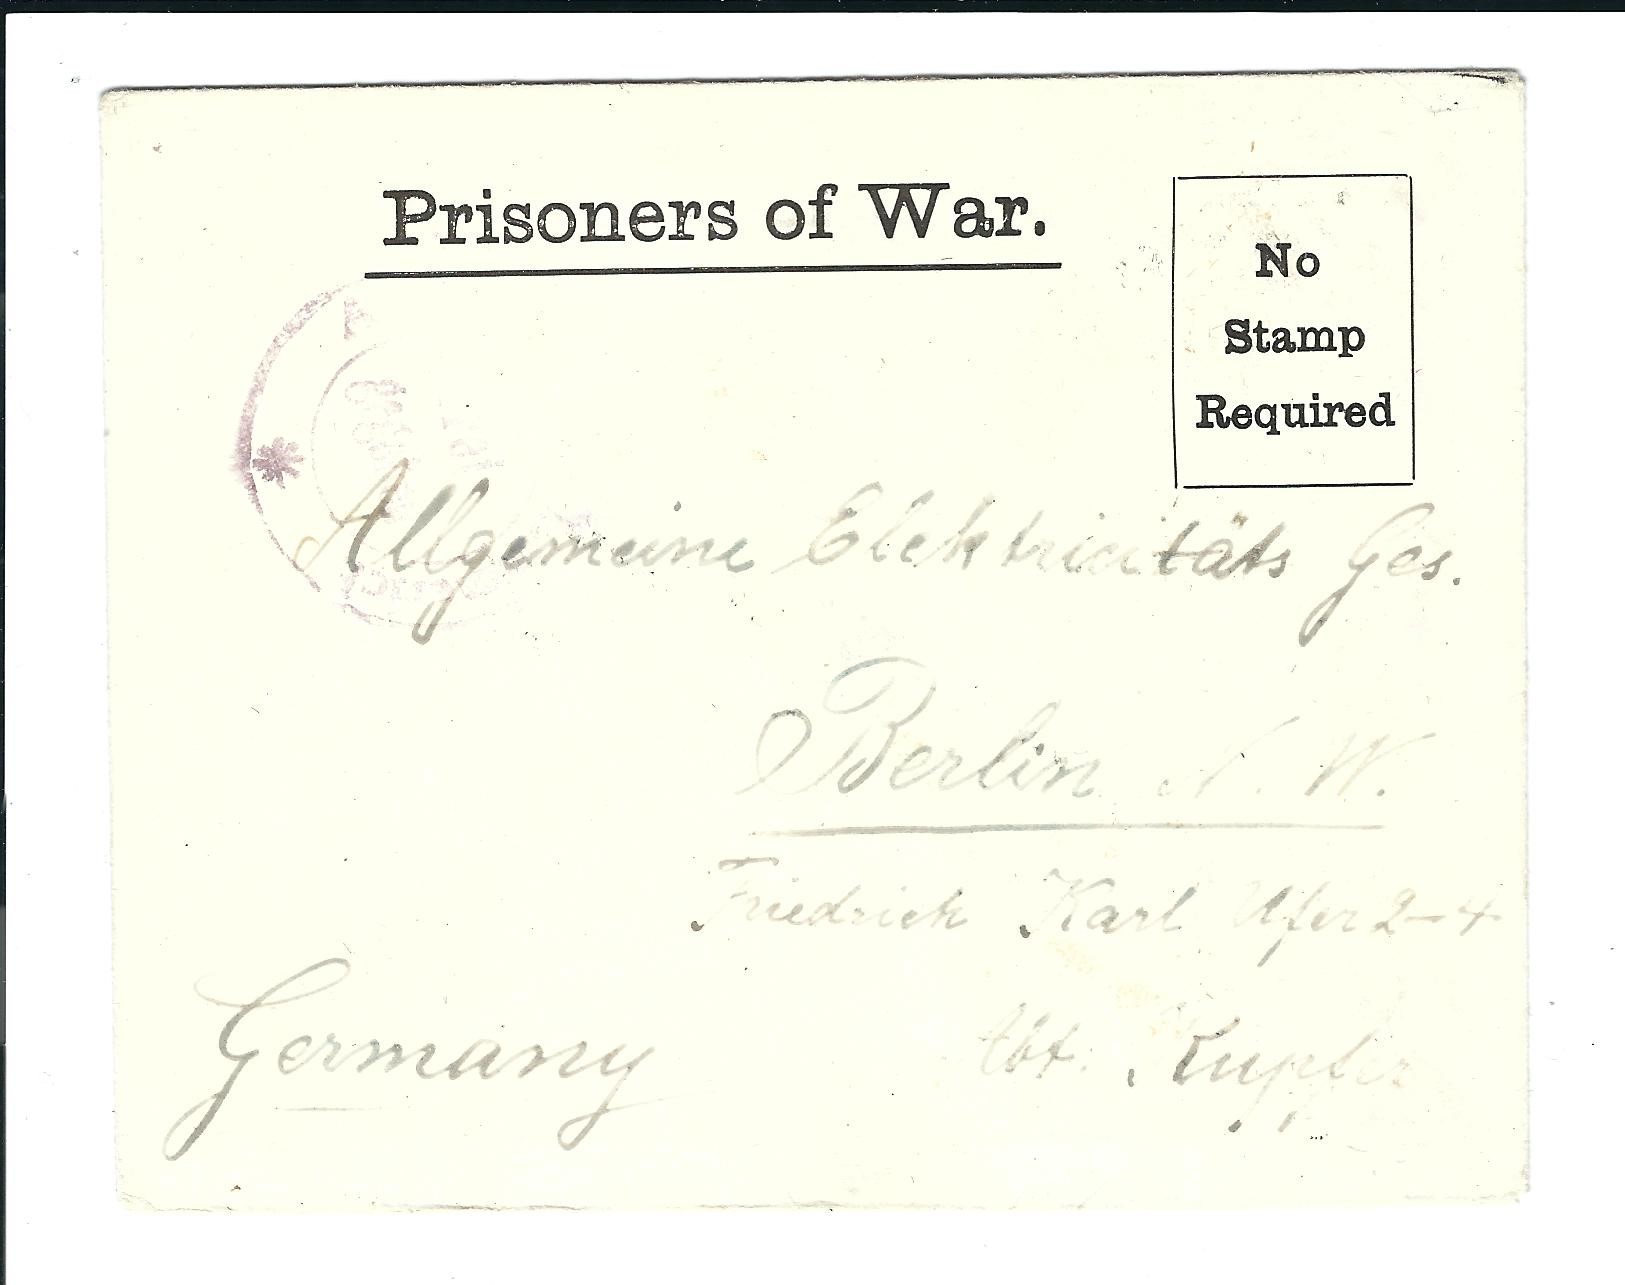 Prisoners of War.
No
Stamp
Required
Allgemeine Elektricitäts Ges.
Berlin N. W.
Friedrich Karl Ufer 2-4
Germany
Abt. Kupfer